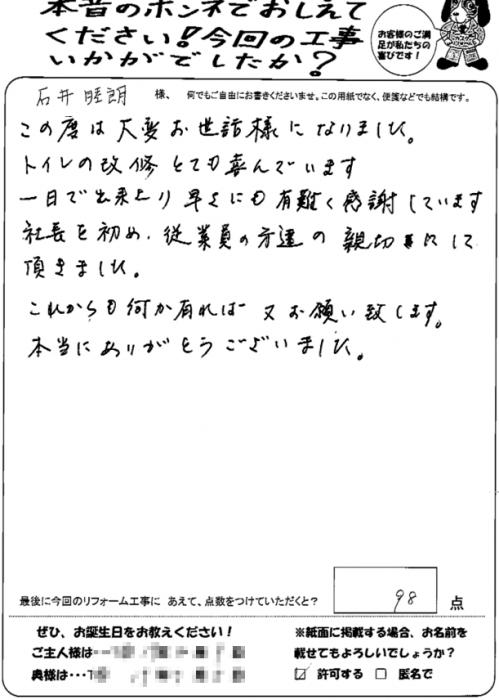 本音のホンネでおしえて
ください！今回の工事
いかがでしたか？
お客様のご満
足が私たちの
喜びです！
石井睦朗 様、 何でもご自由にお書きくださいませ。この用紙でなく、便箋などでも結構です。
この度は大変お世話様になりました。
トイレの改修とても喜んでいます
一日で出来上り早さにも有難く感謝しています
社長を初め、従業員の方達の親切にして
頂きました。
これからも何か有れば又お願い致します。
本当にありがとうございました。
最後に今回のリフォーム工事に あえて、点数をつけていただくと？ 98 点
ぜひ、お誕生日をお教えください！
ご主人様は…
奥様は…
※紙面に掲載する場合、お名前を
載せてもよろしいでしょうか？
☑ 許可する □ 匿名で